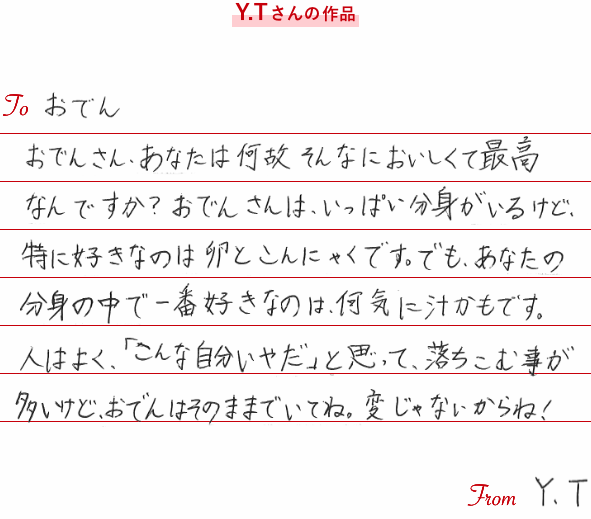 Y.Tさんの作品
To おでん
おでんさん、あなたは何故そんなにおいしくて最高
なんですか？おでんさんは、いっぱい分身がいるけど、
特に好きなのは卵とこんにゃくです。でも、あなたの
分身の中で一番好きなのは、何気に汁かもです。
人はよく、「こんな自分いやだ」と思って、落ちこむ事が
多いけど、おでんはそのままでいてね。変じゃないからね！
From Y.T